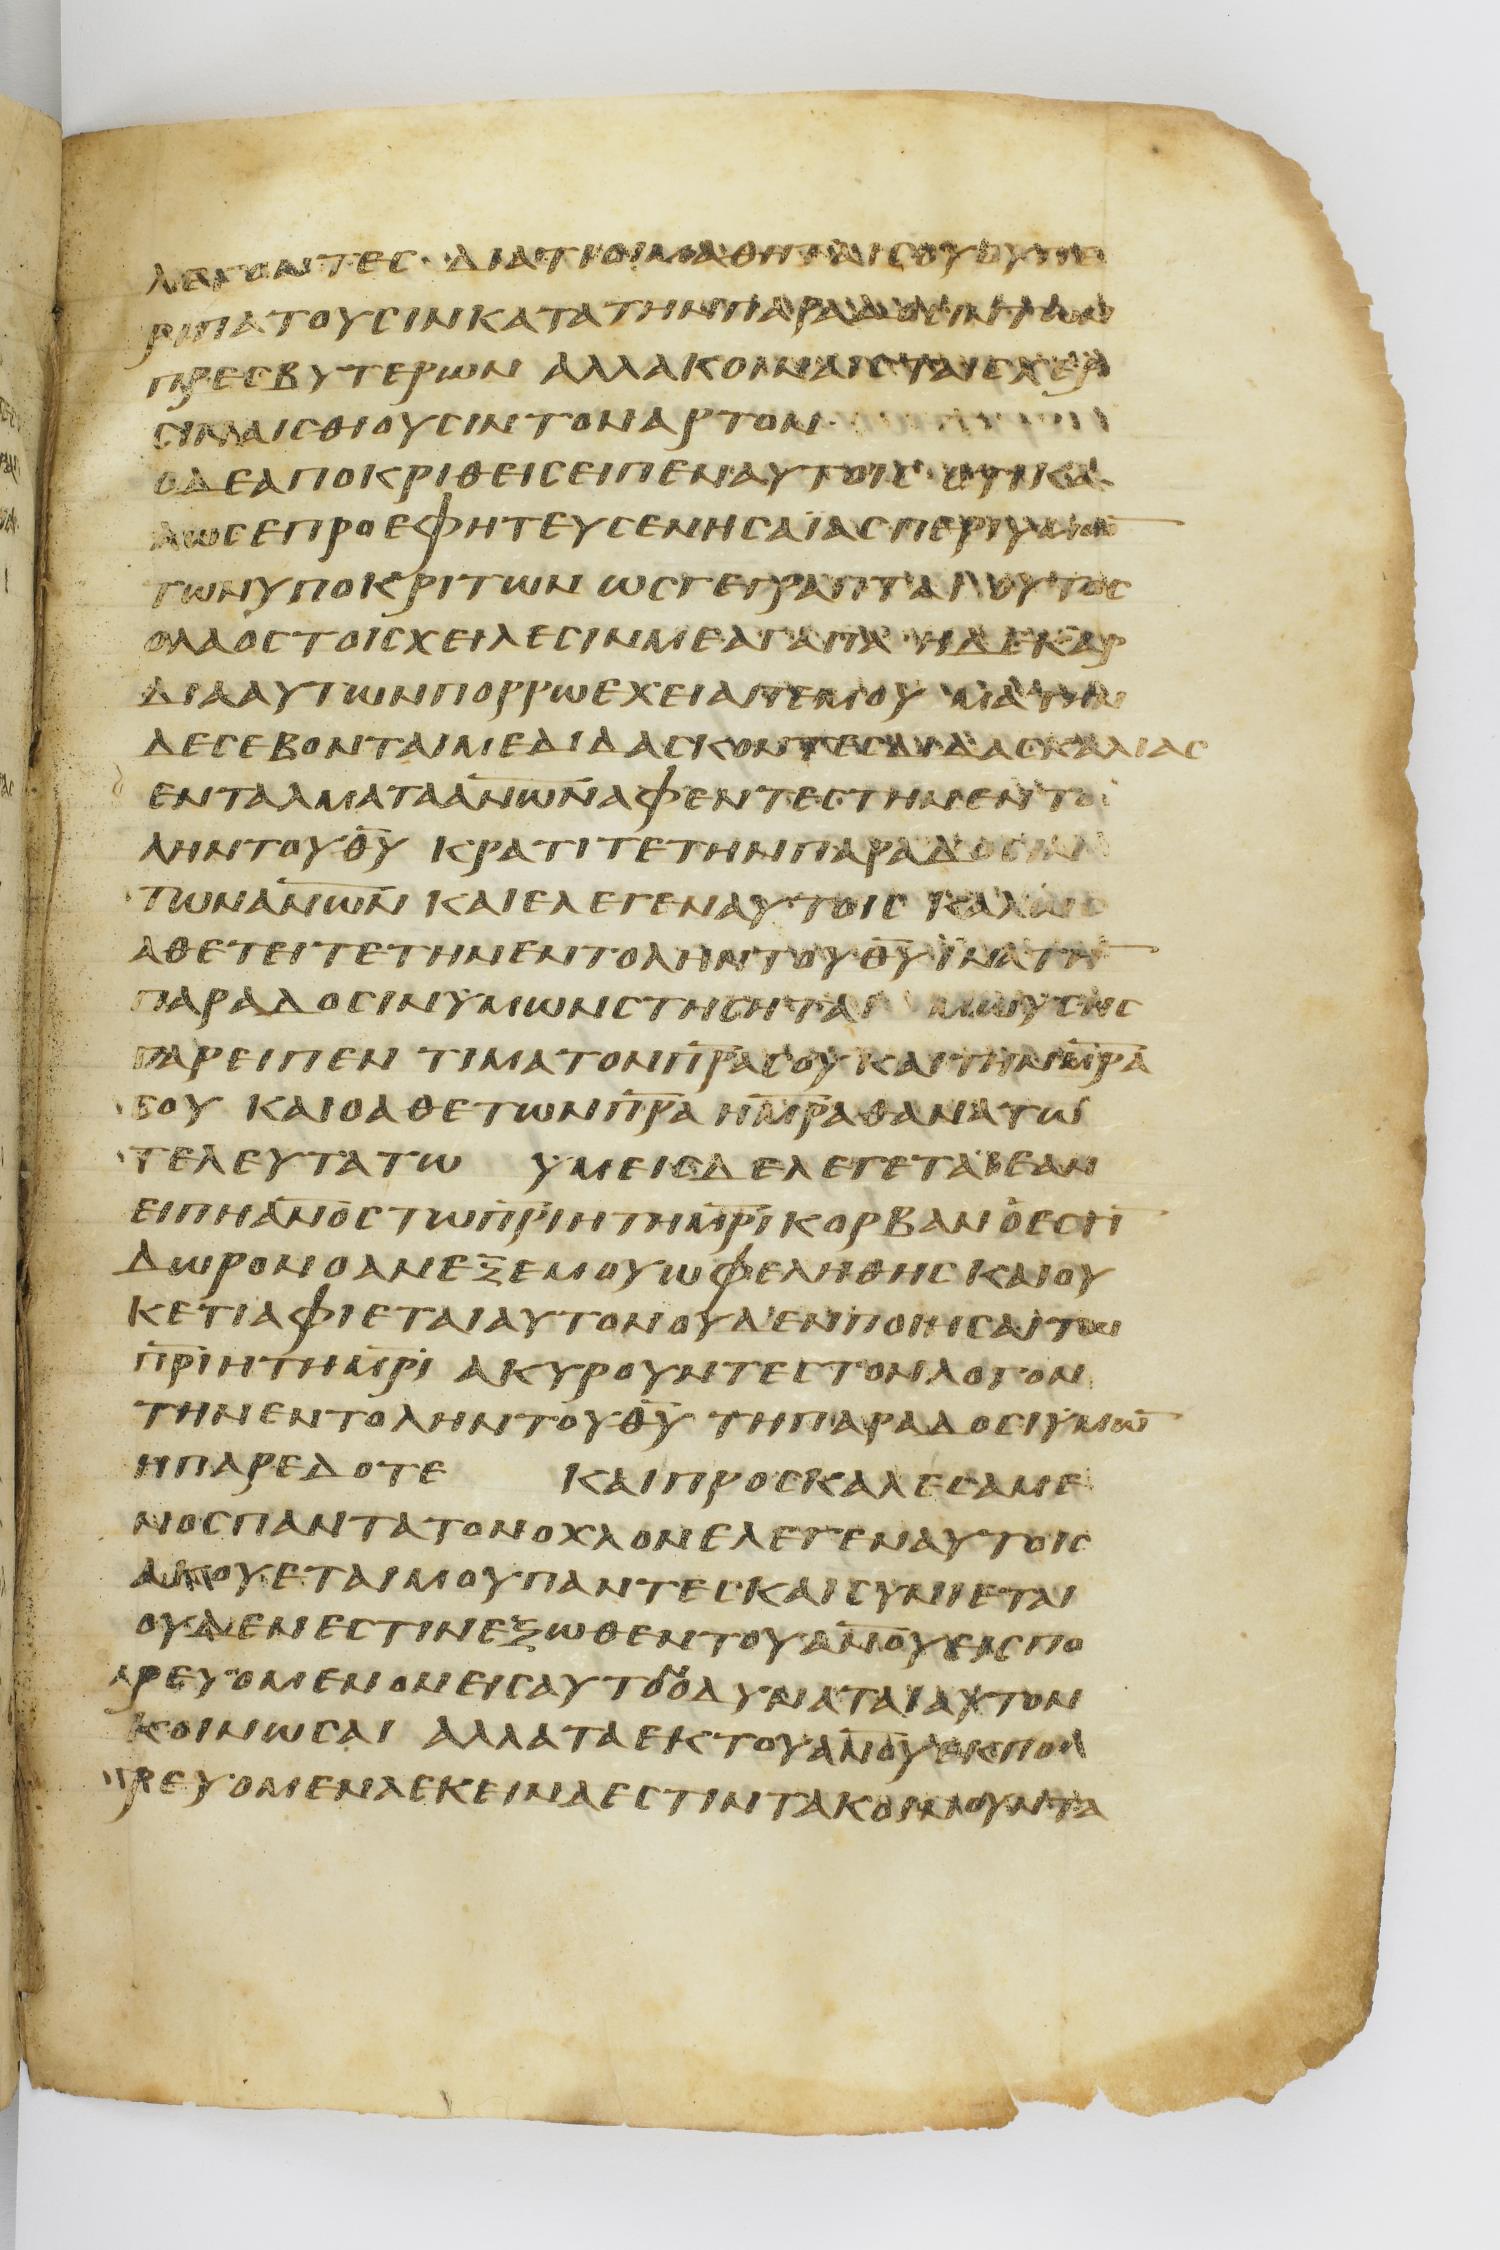 λεγοντες · διατιοιμαθηταισουουπε
ριπατουσινκατατηνπαραδοσιντων
πρεσβυτερων αλλακοιναιστεσχερ
σιναισθιουσιντοναρτον
οδεαποκριθεισειπεναυτοις οτικα
λωσεπροεφητευσενησαϊασπεριυμω̅
τωνυποκριτων ωσγεγραπται ουτος
ολαοστοισχειλεσινμεαγαπα ηδεκαρ
διααυτωνπορρωεχειαπεμου ματην
δεσεβονταιμεδιδασκοντεσδιδασκαλιας
ενταλματααν̅ω̅ν̅αφεντεστηνεντο
ληντουθ̅υ̅ κρατιτετηνπαραδοσιν
τωναν̅ω̅ν̅ καιελεγεναυτοις καλως
αθετειτετηνεντοληντουθ̅υ̅ϊνατη̅
παραδοσινυμωνστησηται μωυσης
γαρειπεν τιματονπ̅ρ̅α̅σου καιτηνμ̅ρ̅α̅
σου καιοαθετωνπ̅ρ̅α̅ ημ̅ρ̅α̅θανατω
τελευτατω υμεισδελεγεταιεαν
ειπηαν̅ο̅σ̅τωπ̅ρ̅ι̅ητημ̅ρ̅ι̅κορβανοεστι̅
δωρονοανεξεμουωφεληθησκαιου
κετιαφιεταιαυτονουδενποιησαιτω
π̅ρ̅ι̅ητημ̅ρ̅ι̅ ακυρουντεστονλογον
τηνεντοληντουθ̅υ̅ τηπαραδοσιυμω̅
ηπαρεδοτε καιπροσκαλεσαμε
νοσπαντατονοχλονελεγεναυτοις
ακουεταιμουπαντεσκαισυνιεται
ουδενεστινεξωθεντουαν̅ο̅υ̅εισπο
ρευομενονεισαυτονοδυναταιαυτον
κοινωσαι αλλαταεκτουαν̅ο̅υ̅εκπο
ρευομεναεκειναεστιντακοινουντα